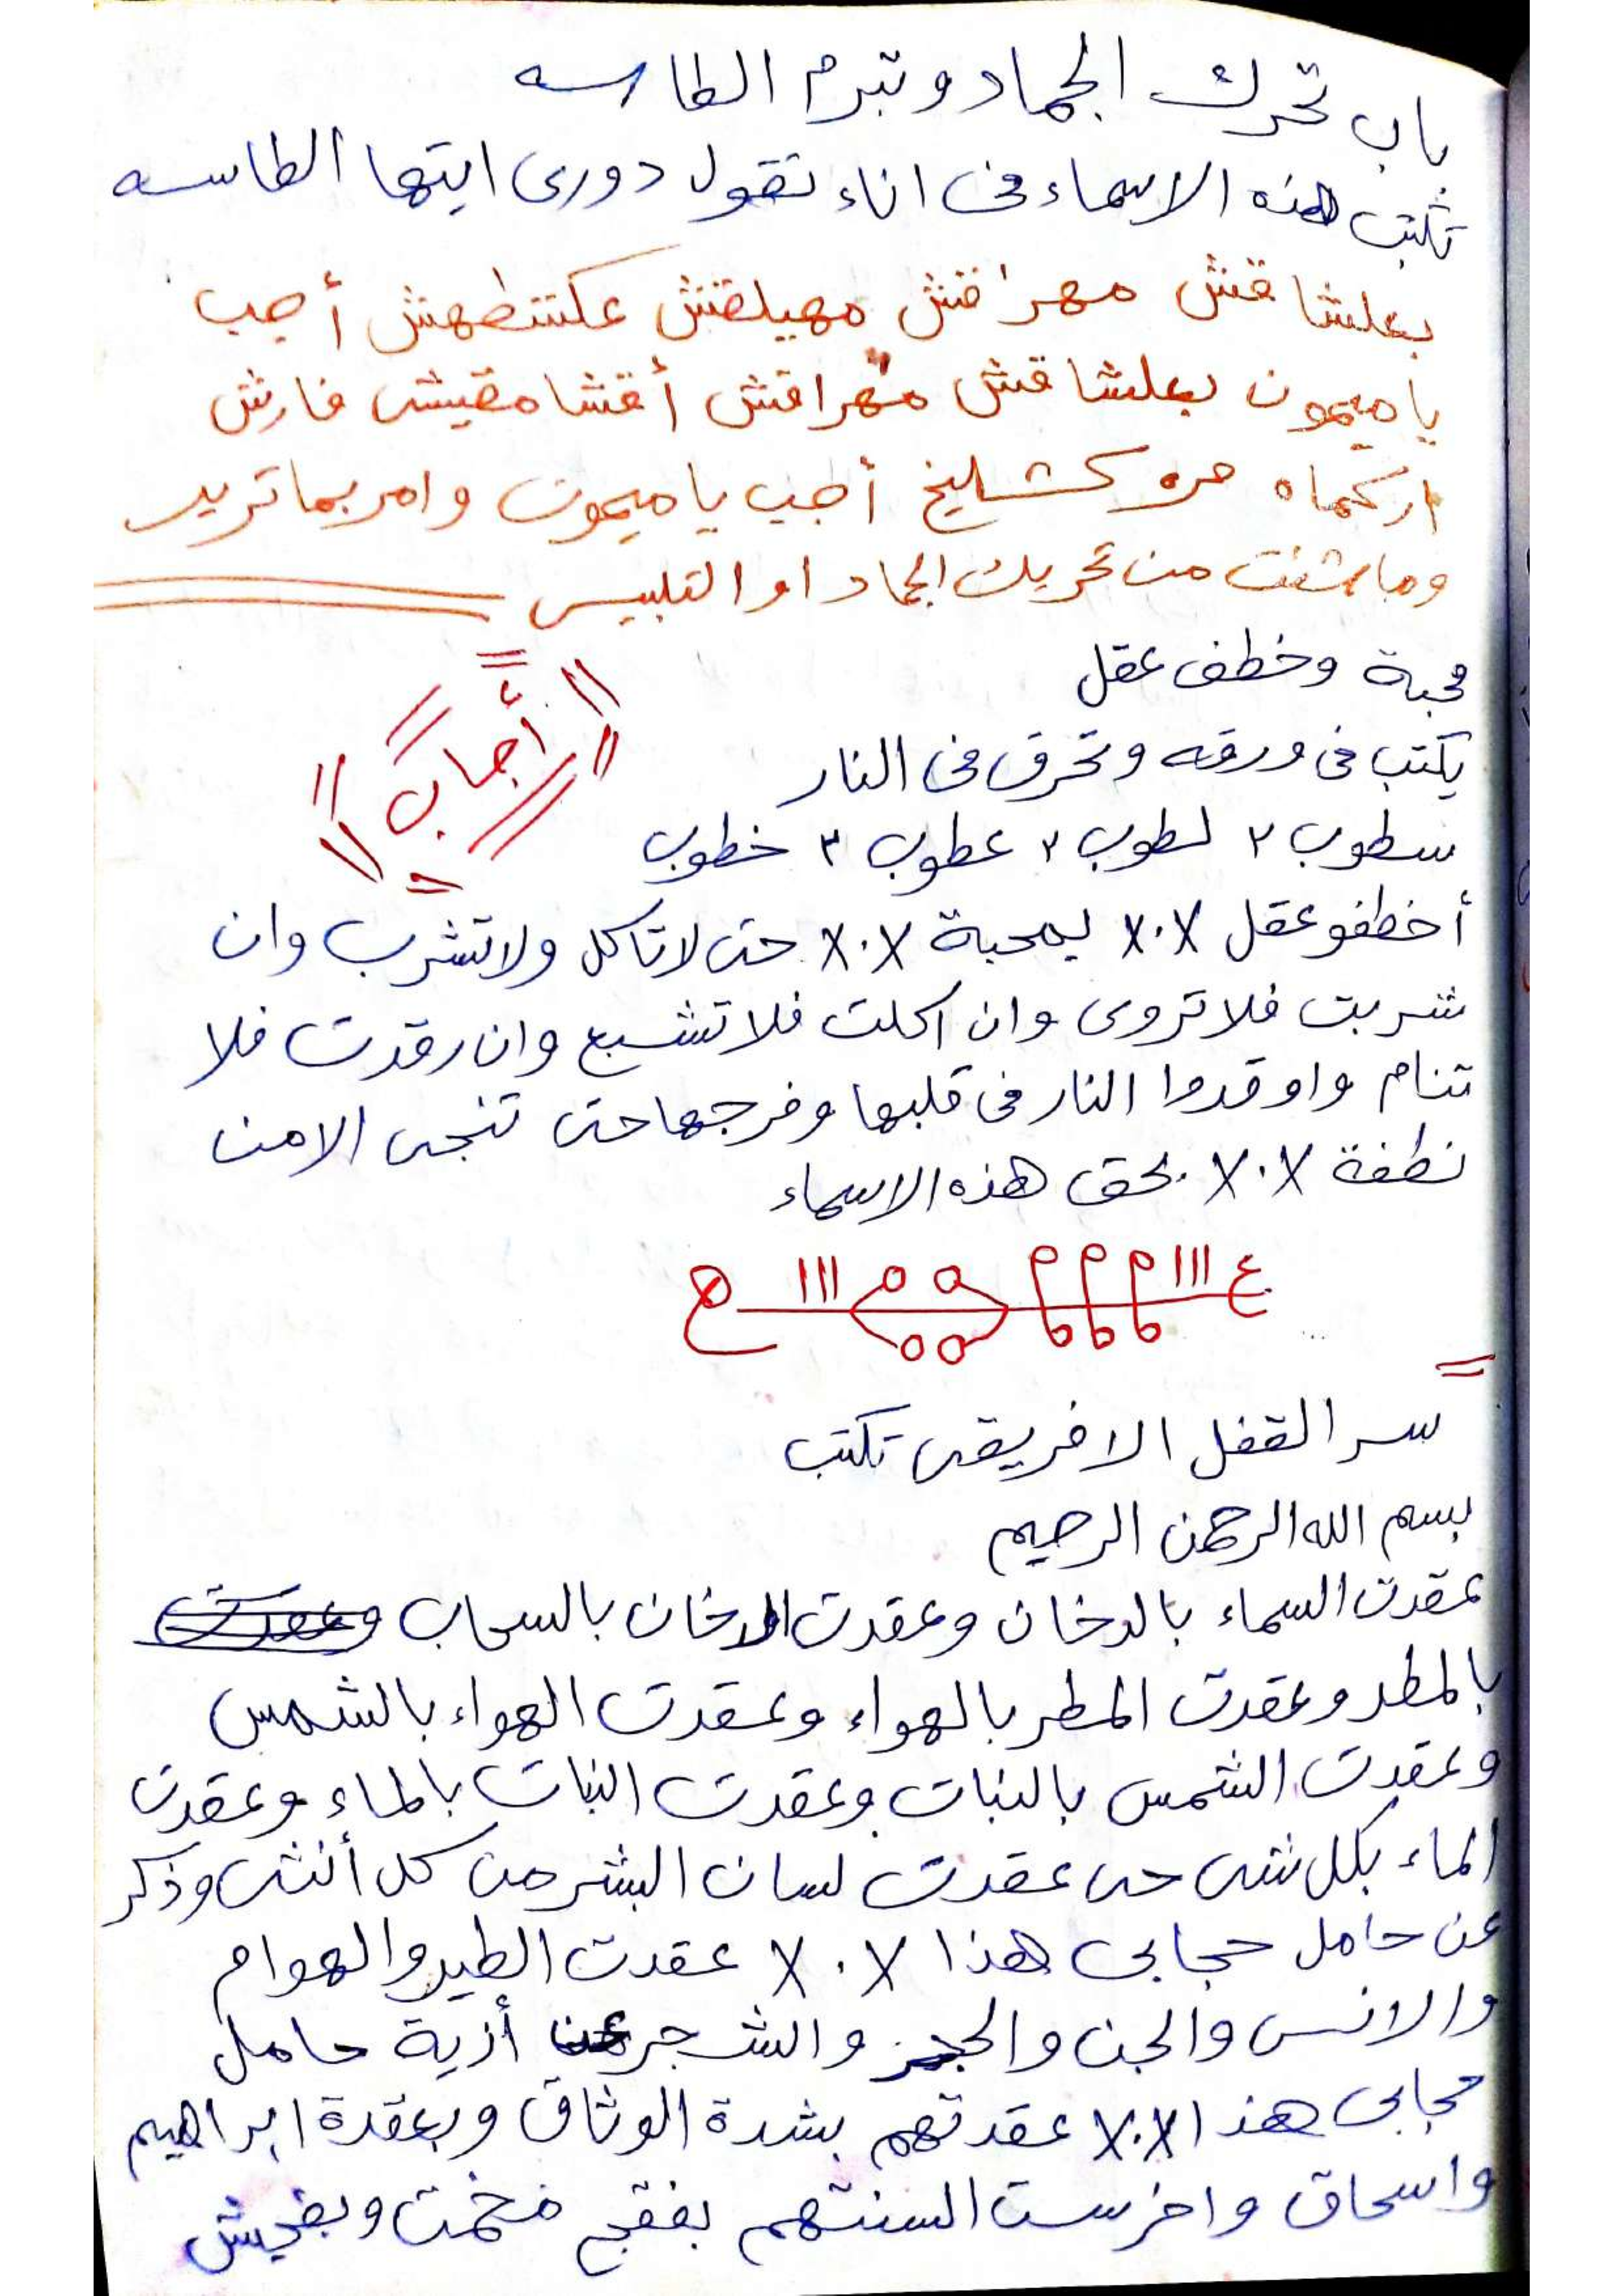 باب تحرك الجماد وتبرم الطاسه
تكتب هذه الاسماء فى اناء تقول دورى ايتها الطاسه
بعلشاقش مهراقش مهيلقش عكشطهش أجب
ياميمون بعلشاقش مهراقش أقشامقيش فارش
اركماه مره كشليخ أجب ياميمون وامر بما تريد
وما شئت من تحريك الجماد او التلبيس
محبة وخطف عقل
أجاب
يكتب فى ورقه وتحرق فى النار
سطوب ٢ لطوب ٢ عطوب ٣ خطوب
أخطفو عقل X.X بمحبة X.X حتى لا تاكل ولا تشرب وان
شربت فلا تروى وان اكلت فلا تشبع وان رقدت فلا
تنام واوقدوا النار فى قلبها وفرجها حتى تنجى الا من
نطفة X.X بحق هذه الاسماء
سر القفل الافريقى تكتب
بسم الله الرحمن الرحيم
عقدت السماء بالدخان وعقدت الدخان بالسحاب وعقدت
بالمطر وعقدت المطر بالهواء وعقدت الهواء بالشمس
وعقدت الشمس بالنبات وعقدت النبات بالماء وعقدت
الماء بكل شى حى عقدت لسان البشر من كل أنثى وذكر
عن حامل حجابى هذا X.X عقدت الطير والهوام
والانس والجن والحجر والشجر عن أزية حامل
حجابى هذا X.X عقدتهم بشدة الوثاق وبعقدة ابراهيم
واسحاق واخرست السنتهم بفقج مخمت